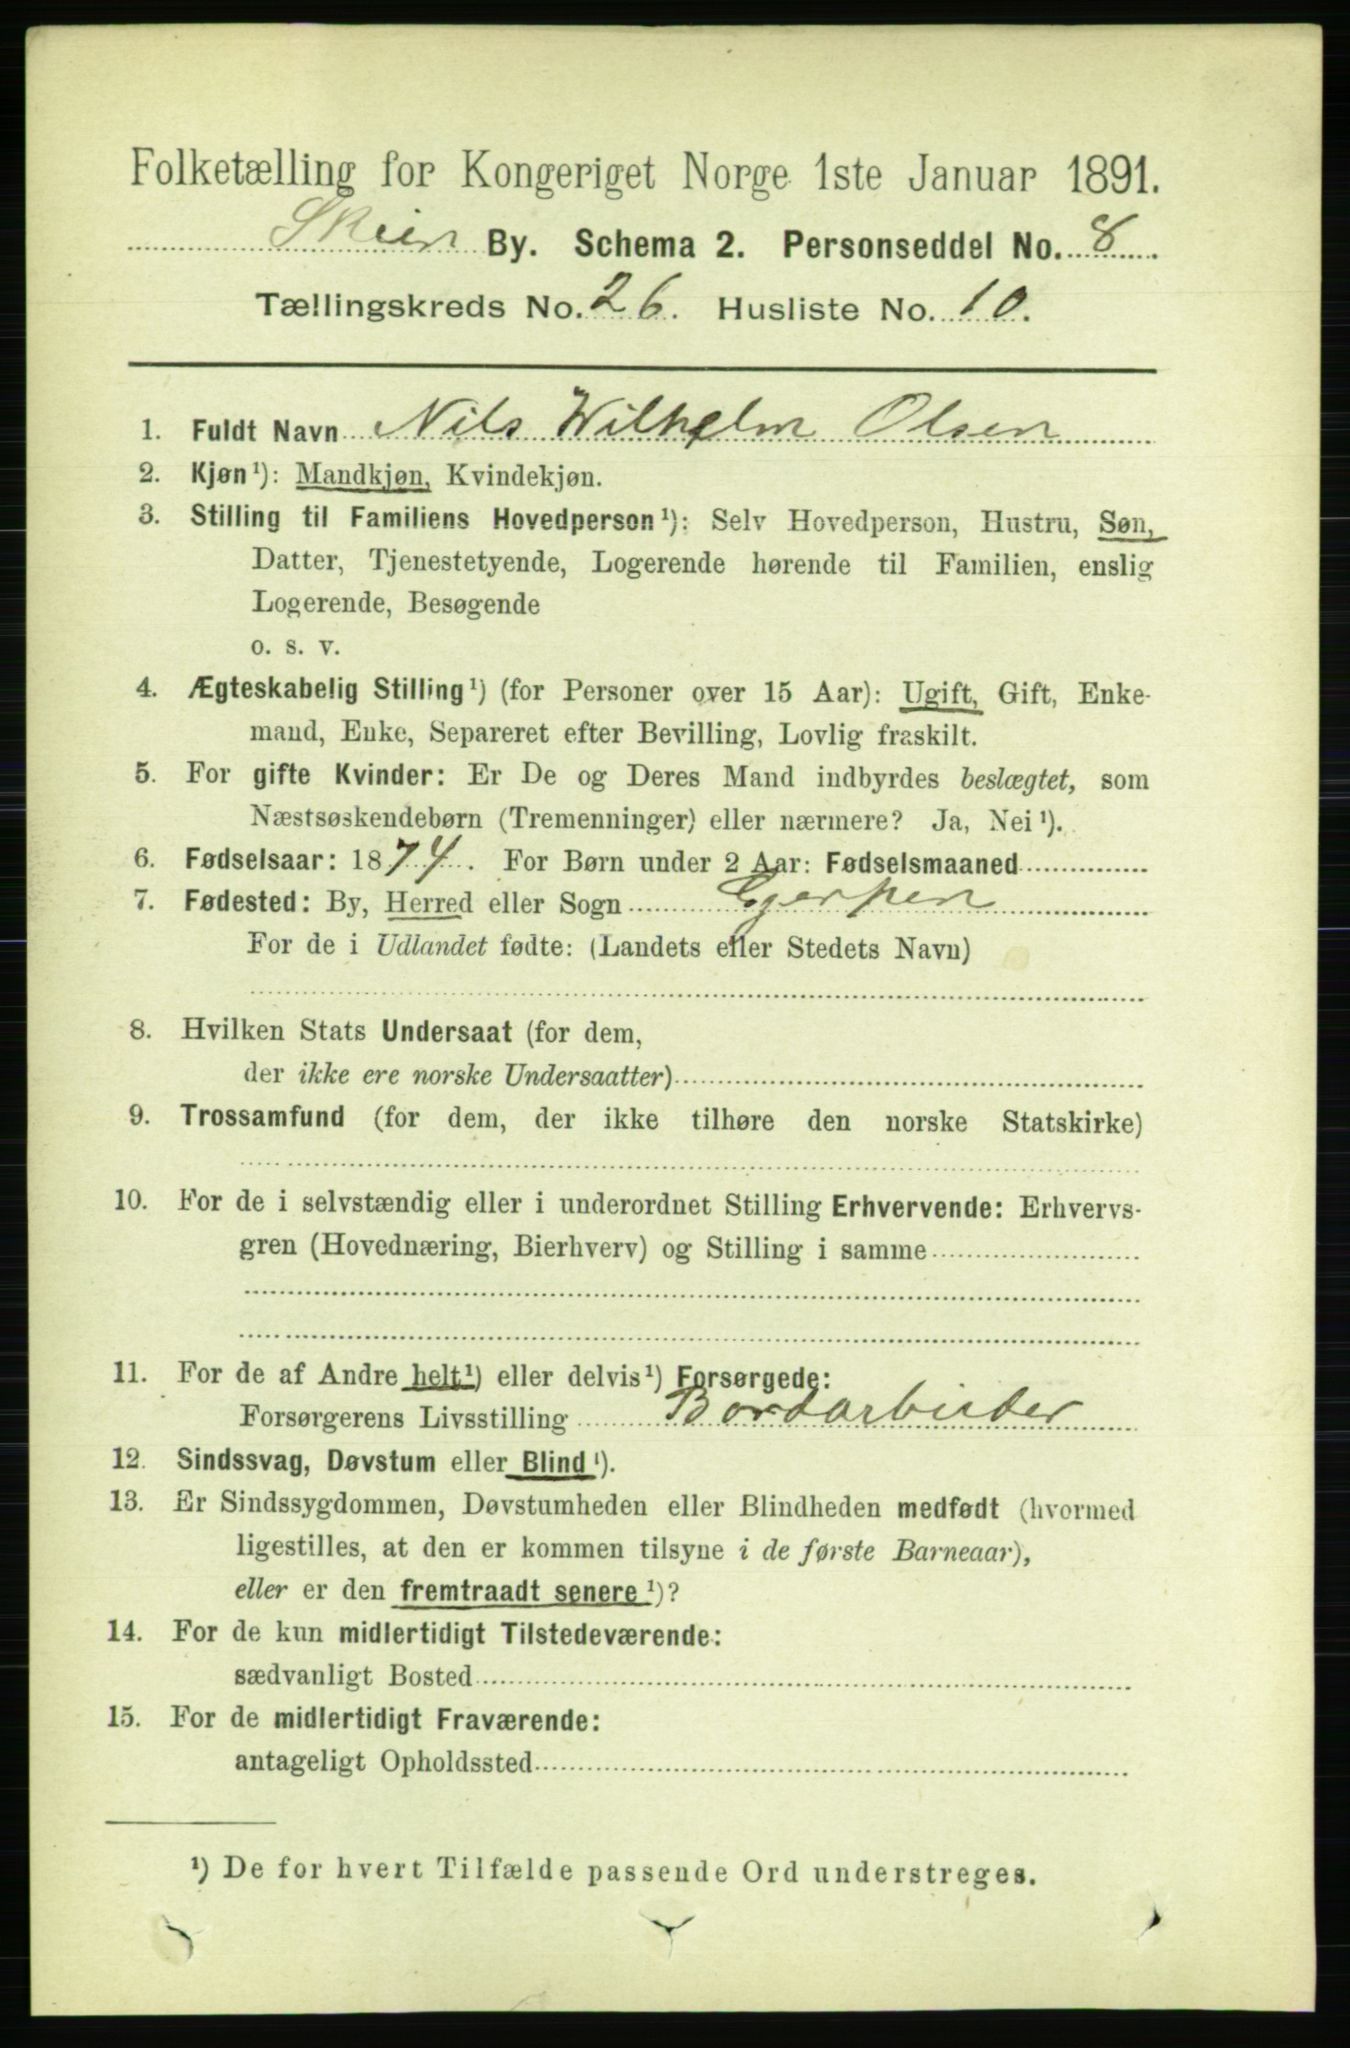 Folketælling for Kongeriget Norge 1ste Januar 1891.
Skien By. Schema 2. Personseddel No. 8
Tællingskreds No. 26. Husliste No. 10.
1. Fuldt Navn Nils Wilhelm Olsen
2. Kjøn¹): Mandkjøn, Kvindekjøn.
3. Stilling til Familiens Hovedperson¹): Selv Hovedperson, Hustru, Søn,
Datter, Tjenestetyende, Logerende hørende til Familien, enslig
Logerende, Besøgende
o. s. v.
4. Ægteskabelig Stilling¹) (for Personer over 15 Aar): Ugift, Gift, Enke-
mand, Enke, Separeret efter Bevilling, Lovlig fraskilt.
5. For gifte Kvinder: Er De og Deres Mand indbyrdes beslægtet, som
Næstsøskendebørn (Tremenninger) eller nærmere? Ja, Nei¹).
6. Fødselsaar: 1874. For Børn under 2 Aar: Fødselsmaaned
7. Fødested: By, Herred eller Sogn Gjerpen
For de i Udlandet fødte: (Landets eller Stedets Navn)
8. Hvilken Stats Undersaat (for dem,
der ikke ere norske Undersaatter)
9. Trossamfund (for dem, der ikke tilhøre den norske Statskirke)
10. For de i selvstændig eller i underordnet Stilling Erhvervende: Erhvervs-
gren (Hovednæring, Bierhverv) og Stilling i samme
11. For de af Andre helt¹) eller delvis¹) Forsørgede:
Forsørgerens Livsstilling Bordarbeider
12. Sindssvag, Døvstum eller Blind¹).
13. Er Sindssygdommen, Døvstumheden eller Blindheden medfødt (hvormed
ligestilles, at den er kommen tilsyne i de første Barneaar),
eller er den fremtraadt senere¹)?
14. For de kun midlertidigt Tilstedeværende:
sædvanligt Bosted
15. For de midlertidigt Fraværende:
antageligt Opholdssted
¹) De for hvert Tilfælde passende Ord understreges.